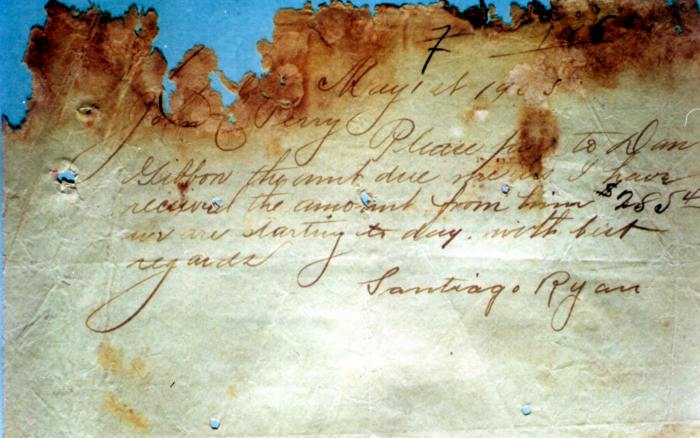 7
May 1st 190
John C Perry Please pay to Dan
Gibbon the amt due me as I have
received the amount from him $2854
we are starting to day. with best
regards
Santiago Ryan